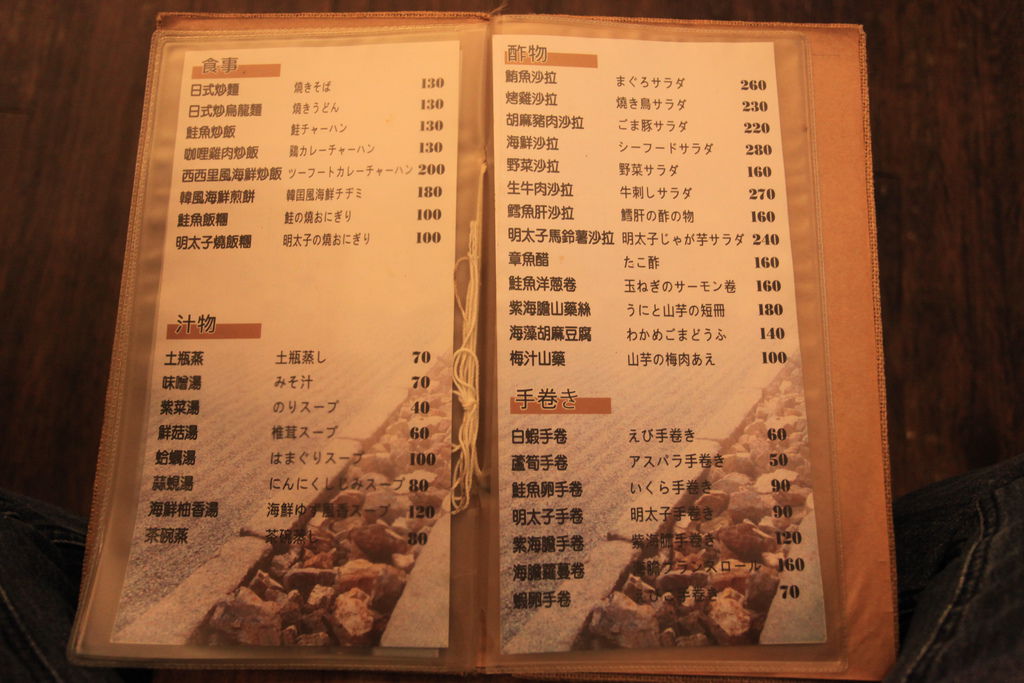 食事
日式炒麵 焼きそば 130
日式炒烏龍麵 焼きうどん 130
鮭魚炒飯 鮭チャーハン 130
咖哩雞肉炒飯 鶏カレーチャーハン 130
西西里風海鮮炒飯 ツーフートカレーチャーハン 200
韓風海鮮煎餅 韓国風海鮮チヂミ 180
鮭魚飯糰 鮭の焼おにぎり 100
明太子燒飯糰 明太子の焼おにぎり 100
汁物
土瓶蒸 土瓶蒸し 70
味噌湯 みそ汁 70
紫菜湯 のりスープ 40
鮮菇湯 椎茸スープ 60
蛤蠣湯 はまぐりスープ 100
蒜蜆湯 にんにくしじみスープ 80
海鮮柚香湯 海鮮ゆず風香スープ 120
茶碗蒸 茶碗蒸し 80
酢物
鮪魚沙拉 まぐろサラダ 260
烤雞沙拉 焼き鳥サラダ 230
胡麻豬肉沙拉 ごま豚サラダ 220
海鮮沙拉 シーフードサラダ 280
野菜沙拉 野菜サラダ 160
生牛肉沙拉 牛刺しサラダ 270
鱈魚肝沙拉 鱈肝の酢の物 160
明太子馬鈴薯沙拉 明太子じゃが芋サラダ 240
章魚醋 たこ酢 160
鮭魚洋蔥卷 玉ねぎのサーモン卷 160
紫海膽山藥絲 うにと山芋の短冊 180
海藻胡麻豆腐 わかめごまどうふ 140
梅汁山藥 山芋の梅肉あえ 100
手卷き
白蝦手卷 えび手卷き 60
蘆筍手卷 アスパラ手卷き 50
鮭魚卵手卷 いくら手卷き 90
明太子手卷 明太子手卷き 90
紫海膽手卷 紫海膽手卷き 120
海膽蘿蔓卷 ロール 160
蝦卵手卷 えびこ手卷き 70